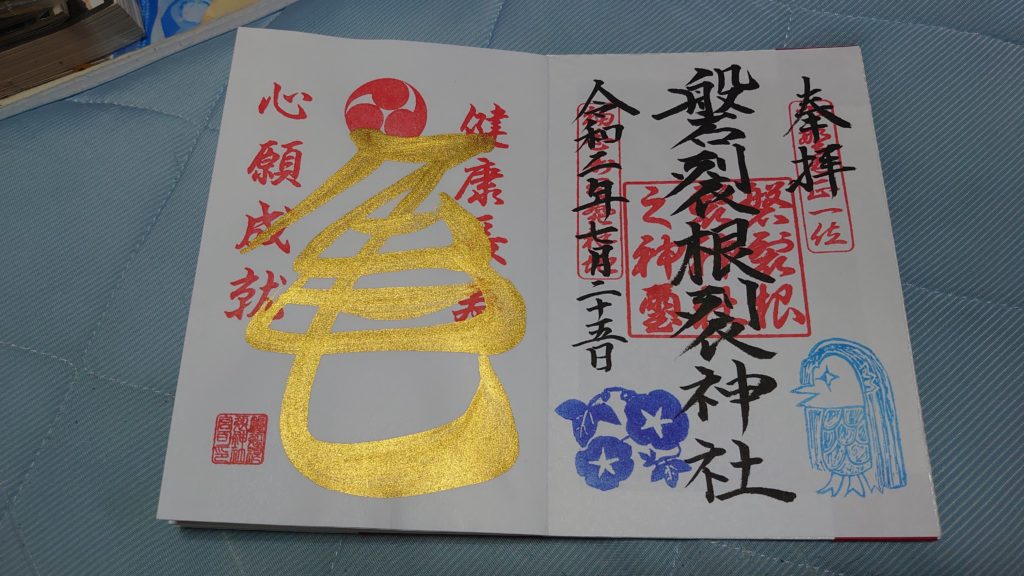 奉拝
磐裂根裂神社
令和二年七月二十五日
正一位
磐裂根裂
之神璽
健康長寿
心願成就